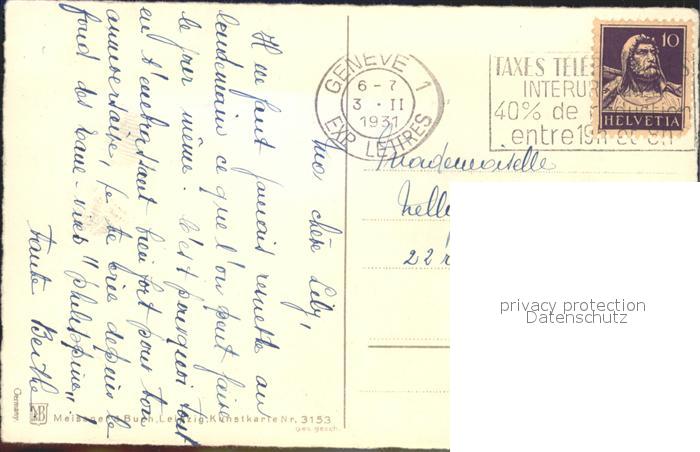 ma chère Lily,
Il ne faut jamais remettre au
lendemain ce que l'on peut faire
le jour même. C'est pourquoi tout
en t'embrassant bien fort pour ton
anniversaire, je te crie depuis le
fond des "Philippine"!
Tante Berthe
GENÈVE 1
6-7
3·II
1931
EXP. LETTRES
TAXES TÉLÉ
INTERUR
40% de
entre 19h et 8h
10
HELVETIA
Mademoiselle
Nelly
22
privacy protection
Datenschutz
Germany
MB
Meissner & Buch, Leipzig, Kunstkarte Nr. 3153
Ges. gesch.